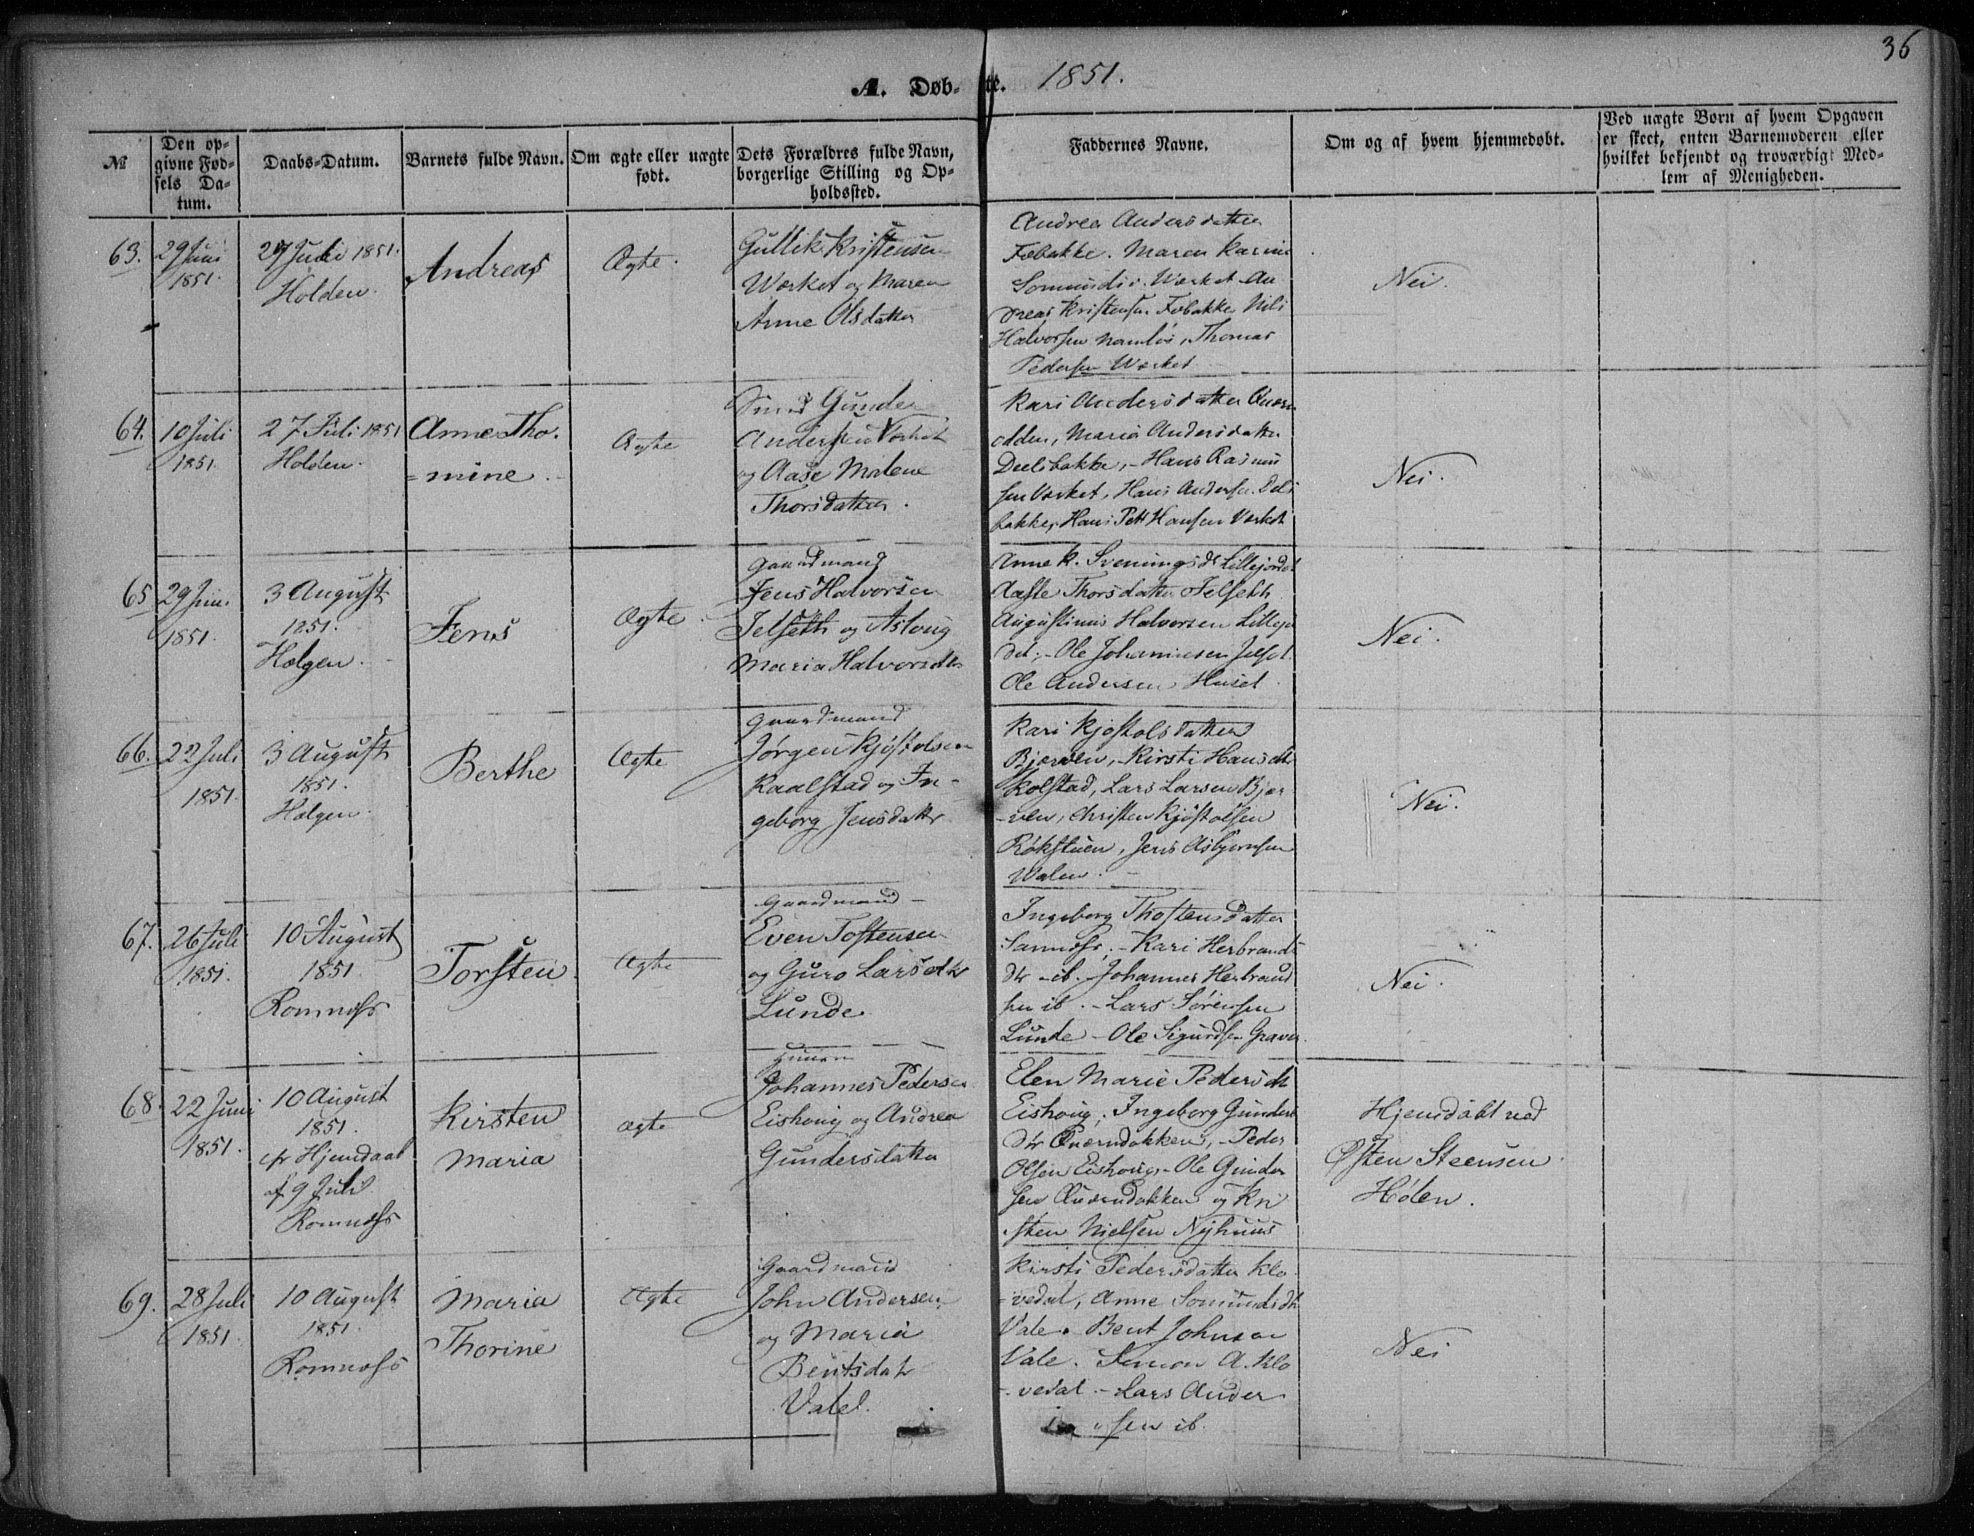 36
A. Døb- te. 1851.
No
Den op-
givne Fød-
sels Da-
tum.
Daabs-Datum.
Barnets fulde Navn.
Om ægte eller uægte
født.
Dets Forældres fulde Navn,
borgerlige Stilling og Op-
holdssted.
Faddernes Navne.
Om og af hvem hjemmedøbt.
Ved uægte Børn af hvem Opgaven
er skeet, enten Barnemoderen eller
hvilket bekjendt og troværdigt Med-
lem af Menigheden.
63.
29 Juni
1851.
27 Juli 1851.
Holden.
Andreas
Ægte.
Gullik Kristensen
Værket og Maren
Anne Olsdatter
Andrea Andersdatter
Fæbakke. Maren Karine
Værket An
dreas Kristensen Fæbakke Nils
Halvorsen Namløs, Thomas
Pedersen Værket
Nei.
64.
10 Juli
1851.
27 Juli 1851
Holden.
Anne Tho-
=mine.
Ægte
Gunder
Andersen Værket
og Aase Malene
Thorsdatter.
Kari Andersdatter
odden, Maria Andersdatter
Deelsbakke, - Hans Rasmus
sen Værket, Hans Andersen Dels
bakke, Hans Pett Hansen Værket
Nei.
65
29 Juni
1851.
3 August
1851.
Hælgen.
Jens
Ægte.
Gaardmand
Jens Halvorsen
Jelseth og Asloug
Maria Halvorsdtr
Anne K. Sveningsdr Lillejordet
Aaste Thorsdatter Jelseth
Augustinus Halvorsen Lillejo
det; - Ole Johannesen Jelset
Ole Andersen Huset.
Nei.
66.
22 Juli
1851.
3 August
1851.
Hælgen.
Berthe
Ægte
Gaardmand
Jørgen Kjøstolsen
Kaalstad og In-
geborg Jensdattr
Kari Kjøstolsdatter
Bjerven, - Kirsti Hansdtr
Kolstad, Lars Larsen Bjær
-ven, Christen Kjøstolsen
Røkstuen, Jens Asbjørnsen
Walen.
Nei.
67.
26 Juli
1851.
10 August
1851.
Romnæss
Torsten
Ægte
Gaardmand -
Even Tostensen
og Guro Larsdtr
Lunde
Ingeborg Thostensdatter
Sannæss. - Kari Herbrands
dtr - ib. - Johannes Herbrand
sen ib. - Lars Sørensen
Lunde - Ole Sigurdsen Graver
Nei.
68.
22 Juni
1851.
10 August
1851.
efr Hjemdaab
af 9 Juli
Romnæss
Kirsten
Maria
Ægte
Johannes Pedersen
Eishoug og Andrea
Gundersdatter
Elen Marie Pedersdtr
Eishoug, Ingeborg Gunders
dtr Qværndokken, - Peder
Olsen Eishoug, - Ole Gunder
sen Qværndokken og Kri
sten Nielsen Nyhuus
Hjemdøbt ved
Østen Steensen
Hølen.
69.
28 Juli
1851.
10 August
1851.
Romnæss
Maria
Thorine
Ægte
Gaardmand
John Andersen
og Maria
Bentsdatr
Vale.
Kirsti Pedersdatter Klo
-vedal, Anne Somundsdtr
Vale. Bent Johnsen
Vale. Simon A. Klo
-vedal. - Lars Ander
sen ib.
Nei